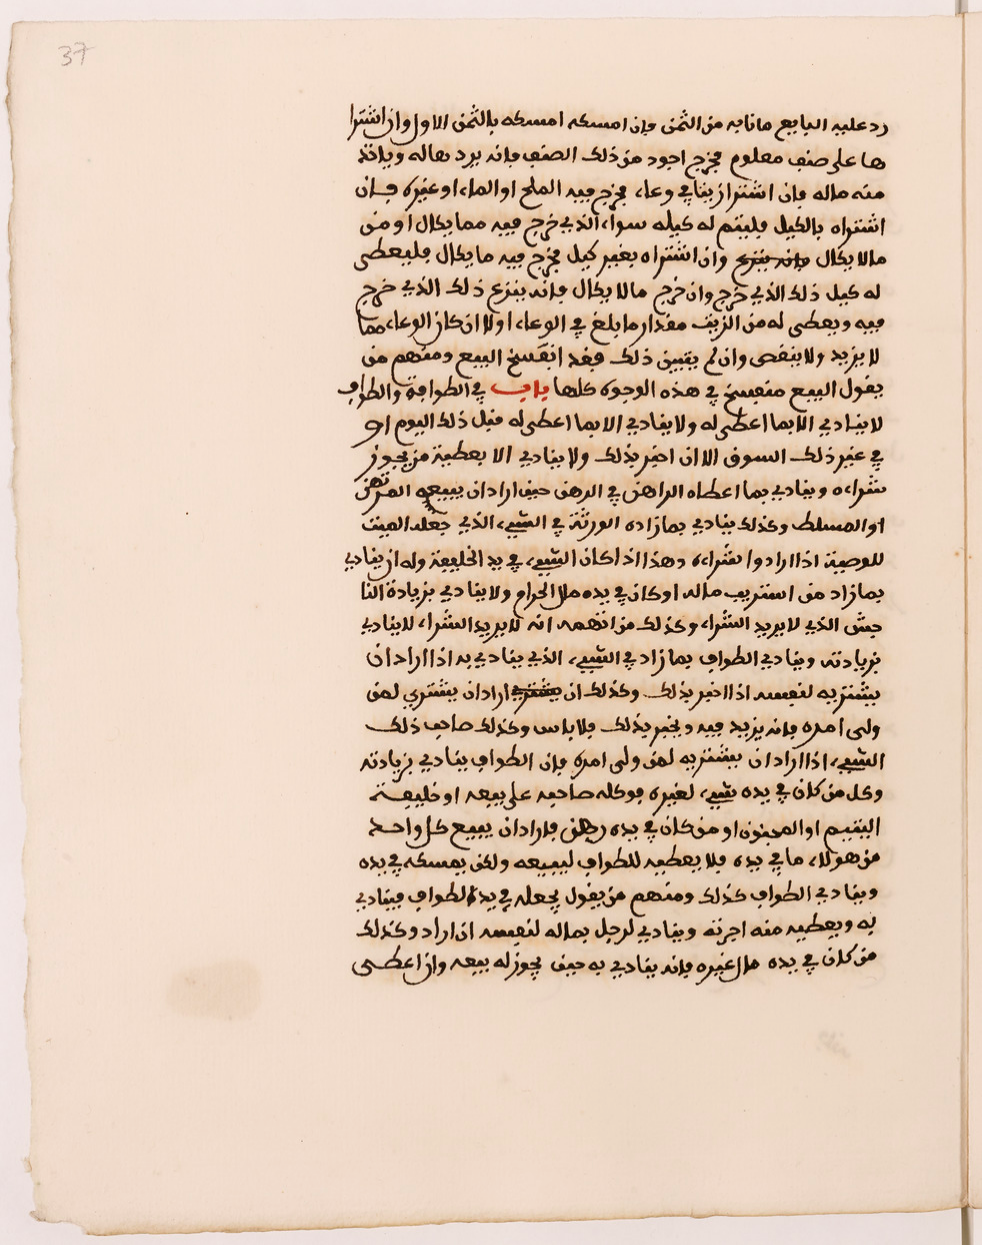 37
رد عليه البايع مانابه من الثمن فإن امسكه امسكه بالثمن الاول وان اشترا
ها على صنف معلوم فخرج اجود من ذلك الصنف فإنه يرد ماله وياخذ
منه ماله فإن اشترا زيتا في وعاء فخرج فيه الملح او الماء او غيره فإن
اشتراه بالكيل فليتم له كيله سواء الذي خرج فيه مما يكال او من
مالا يكال فإنه ينزع وان اشتراه بغير كيل فخرج فيه ما يكال فليعطى
له كيل ذلك الذي خرج وان خرج مالا يكال فإنه ينزع ذلك الذي خرج
فيه ويعطى له من الزيت مقدار ما بلغ في الوعاء اولا ان كان الوعاء مما
لا يزيد ولا ينقص وان لم يتبين ذلك فقد انفسخ البيع ومنهم من
يقول البيع منفسخ في هذه الوجوه كلها باب في الطوافة والطواف
لا ينادي الا بما اعطى له ولا ينادي الا بما اعطى له قبل ذلك اليوم او
في غير ذلك السوق الا ان اخبر بذلك ولا ينادي الا بعطية من يجوز
شراءه وينادي بما اعطاه الراهن في الرهن حين اراد ان يبيعه المرتهن
او المسلط وكذلك ينادي بما زاده الورثة في الشيء الذي جعله الميت
للوصية اذا ارادوا شراءه وهذا اذا كان الشيء في يد الخليفة وله ان ينادي
بما زاد من استريب ماله او كان في يده مال الحرام ولا ينادي بزيادة النا
جش الذي لا يريد الشراء وكذلك من اتهمه انه لا يريد الشراء لا ينادي
بزيادته وينادي الطواف بما زاد في الشيء الذي ينادي به اذا اراد ان
يشتريه لنفسه اذا اخبر بذلك وكذلك ان يشتري اراد ان يشتري لمن
ولى امره فإنه يزيد فيه ويخبر بذلك فلا باس وكذلك صاحب ذلك
الشيء اذا اراد ان يشتريه لمن ولى امره فإن الطواف ينادي بزيادته
وكل من كان في يده شيء لغيره فوكله صاحبه على بيعه او خليفة
اليتيم او المجنون او من كان في يده رهن فاراد ان يبيع كل واحد
من هولاء ما في يده فلا يعطيه للطواف ليبيعه ولكن يمسكه في يده
وينادي الطواف كذلك ومنهم من يقول يجعله في يد الطواف فينادي
به ويعطيه منه اجرته وينادي لرجل بماله لنفسه ان اراد وكذلك
من كان في يده مال غيره فإنه ينادي به حين يجوز له بيعه وان اعطى